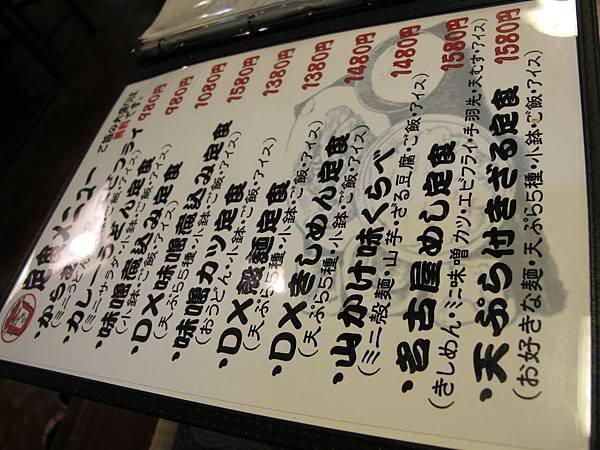 定食メニュー
ご飯の大盛りは
無料です。
・からあげ・エビフライ 980円
・カレーうどん定食 980円
(ミニサラダ・小鉢・ご飯・アイス)
・味噌煮込み定食 1080円
(小鉢・ご飯・アイス)
・DX味噌煮込み定食 1580円
(天ぷら5種・小鉢・ご飯・アイス)
・味噌カツ定食 1380円
(おうどん・小鉢・ご飯・アイス)
・DX殻麺定食 1380円
(天ぷら5種・小鉢・ご飯・アイス)
・DXきしめん定食 1480円
(天ぷら5種・小鉢・ご飯・アイス)
・山かけ味くらべ 1480円
(ミニ殻麺・山芋・ざる豆腐・ご飯・アイス)
・名古屋めし定食 1580円
(きしめん・ミニ味噌カツ・エビフライ・手羽先・天むす・アイス)
・天ぷら付きざる定食 1580円
(お好きな麺・天ぷら5種・小鉢・ご飯・アイス)